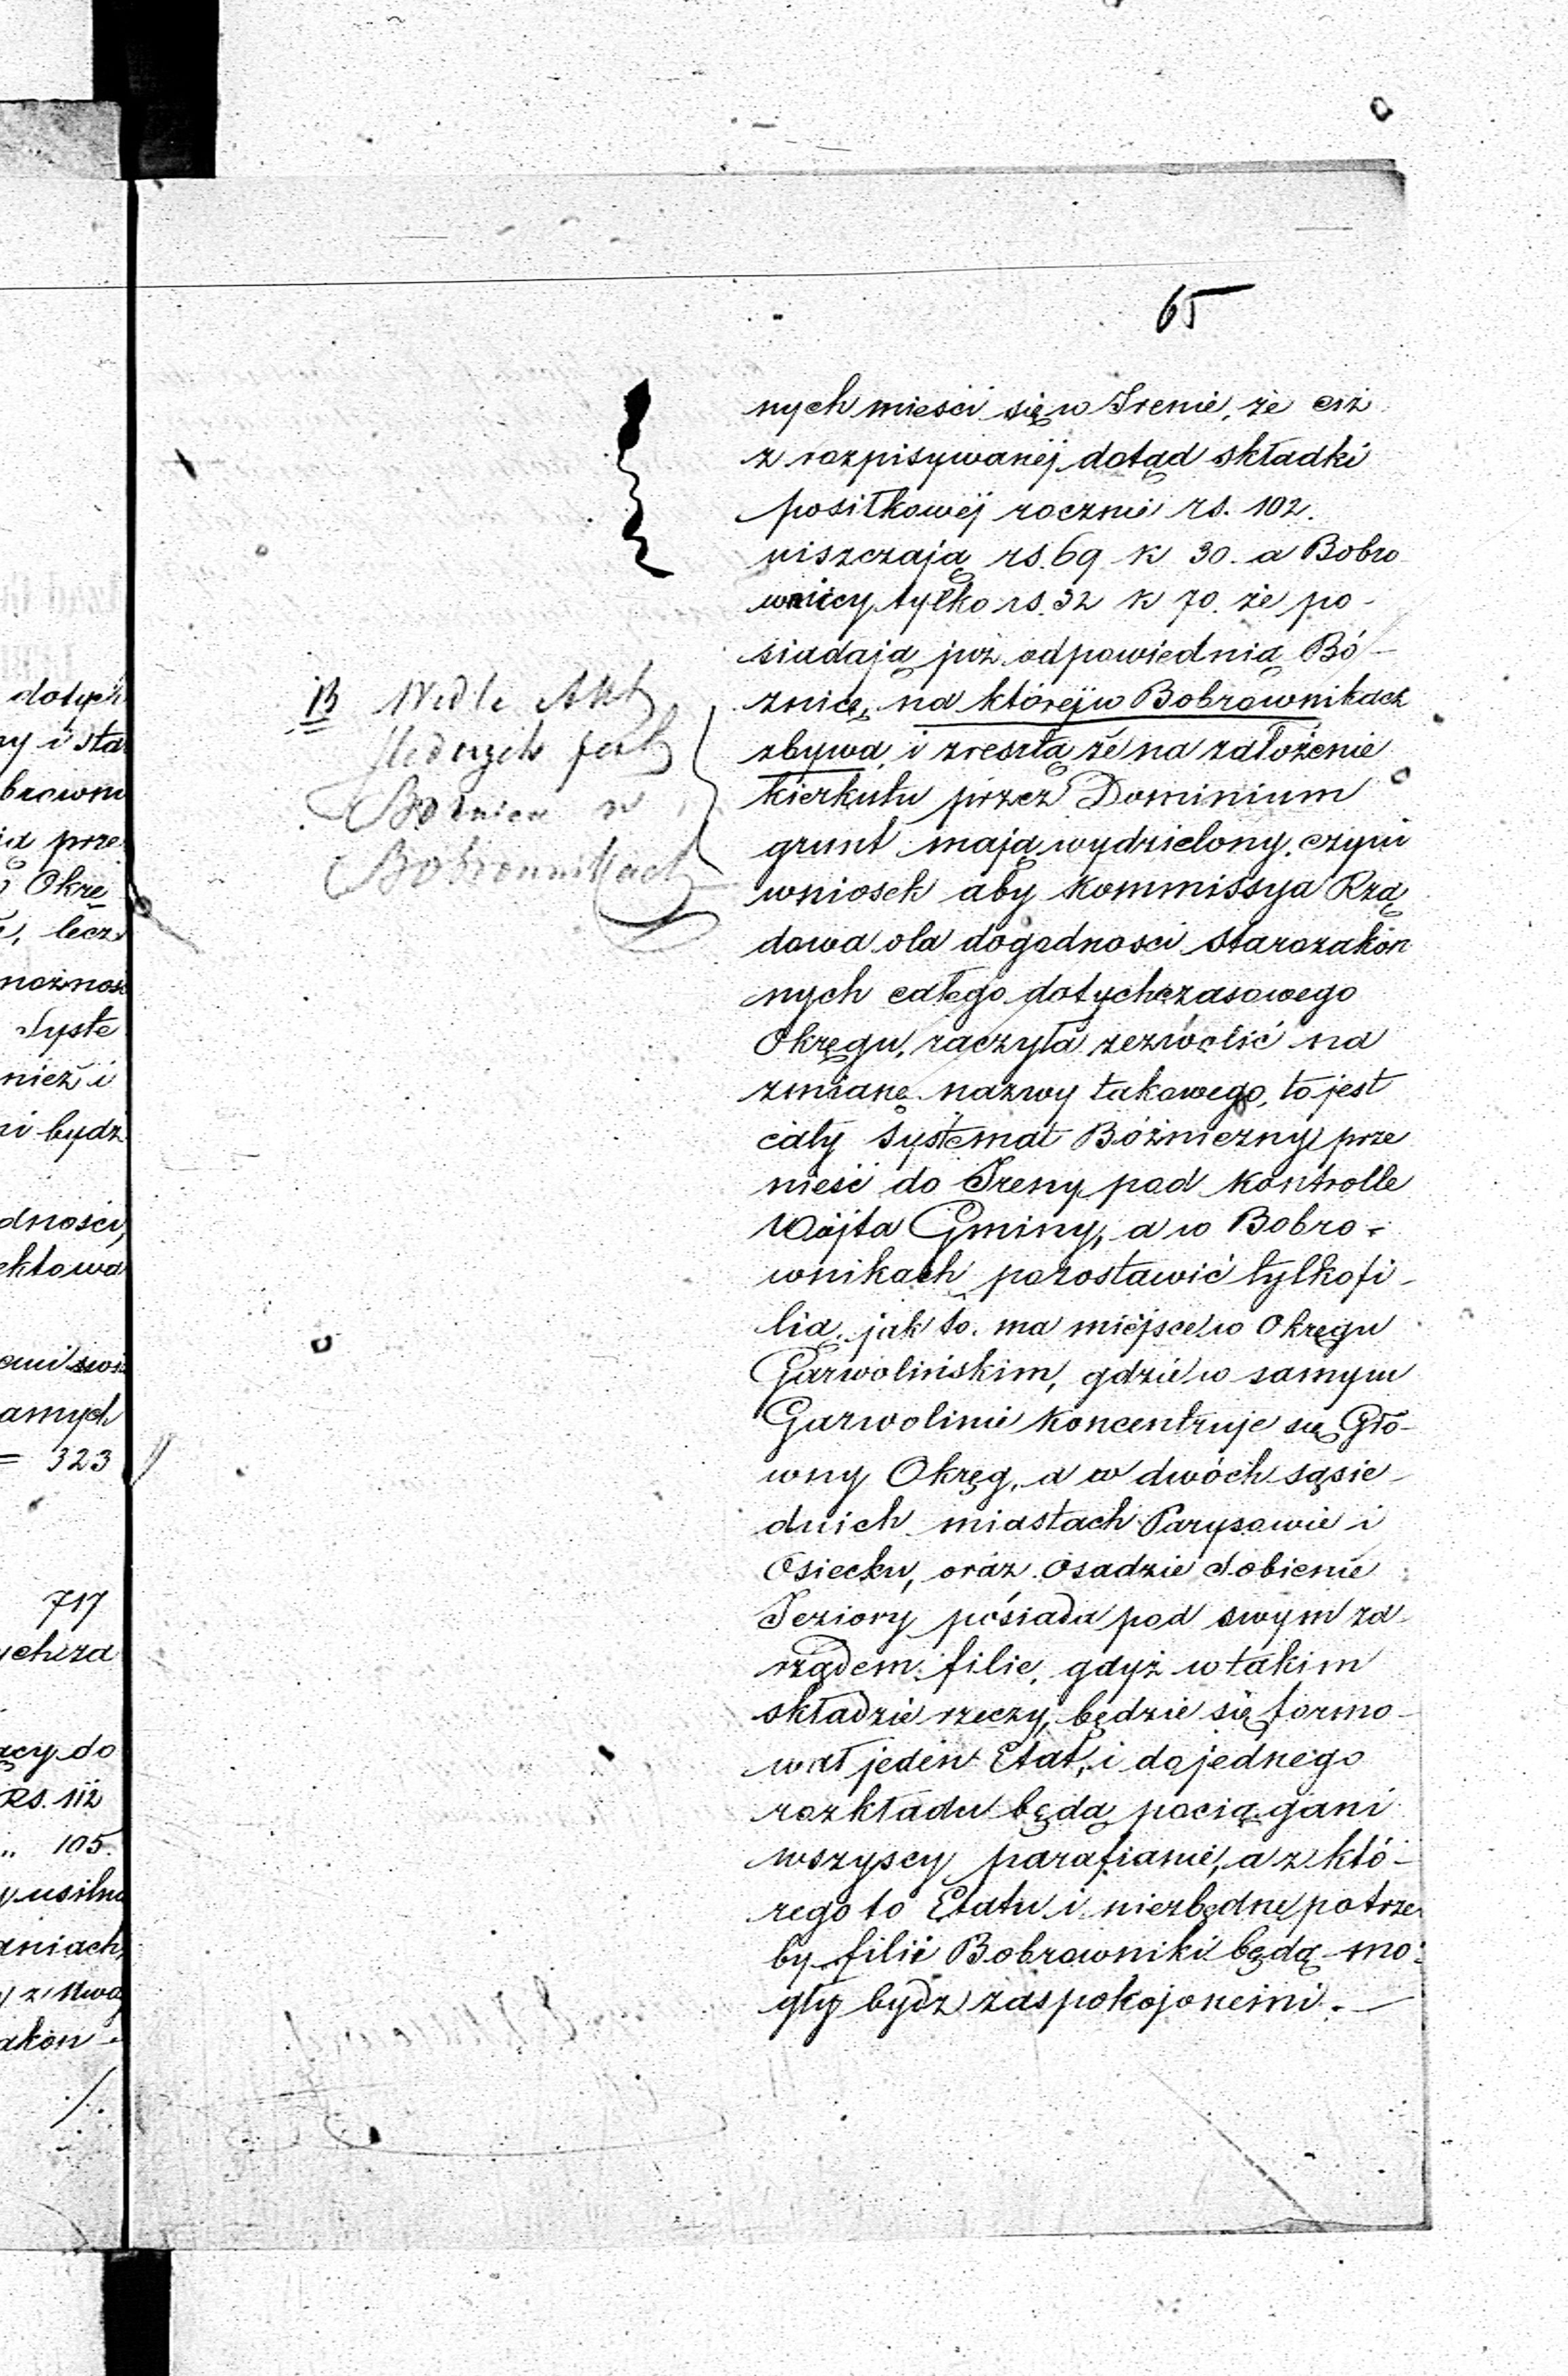 65
nych mieści się w Irenie, że ciż
z rozpisywanéj dotąd składki
posiłkowéj rocznie rs. 102.
uiszczają rs. 69 k 30. a Bobro
wnicy tylko rs. 32 k 70. że po-
siadają już odpowiednią Bó-
żnicę, na któréj w Bobrownikach
zbywa, i zresztą że na założenie
kierkutu przez Dominium
grunt mają wydzielony, czyni
wniosek aby Kommissya Rzą
dowa dla dogodności starozakon
nych całego dotychczasowego
Okręgu, raczyła zezwolić na
zmianę nazwy takowego, to jest
cały systemat Bóżniczny prze
nieść do Ireny pod kontrolle
Wójta Gminy, a w Bobro-
wnikach pozostawić tylko fi-
lią, jak to ma miéjsce w Okręgu
Garwolińskim, gdzie w samym
Garwolinie koncentruje się Głó-
wny Okręg, a w dwóch sąsie-
dnich miastach Parysowie i
Osiecku, oraz osadzie Sobienie
Jeziory posiada pod swym za-
rządem filie, gdyż w takim
składzie rzeczy, będzie się formo-
wał jeden Etat, i do jednego
rozkładu będą pociągani
wszyscy parafianie, a z któ-
rego to Etatu i niezbędne potrze
by filii Bobrowniki będą mo-
gły bydz zaspokojonemi.-
B Wedle Akt
jest
Bożnica w
Bobrownikach
dotych
ny i sta
browni
ia prze
Okrę
lecz
możnoś
Syste
nież i
ni bydź
dności
ektowa
amych
= 323
717
ych za
ący do
Rs. 112
" 105.
usilne
aniach
akon-